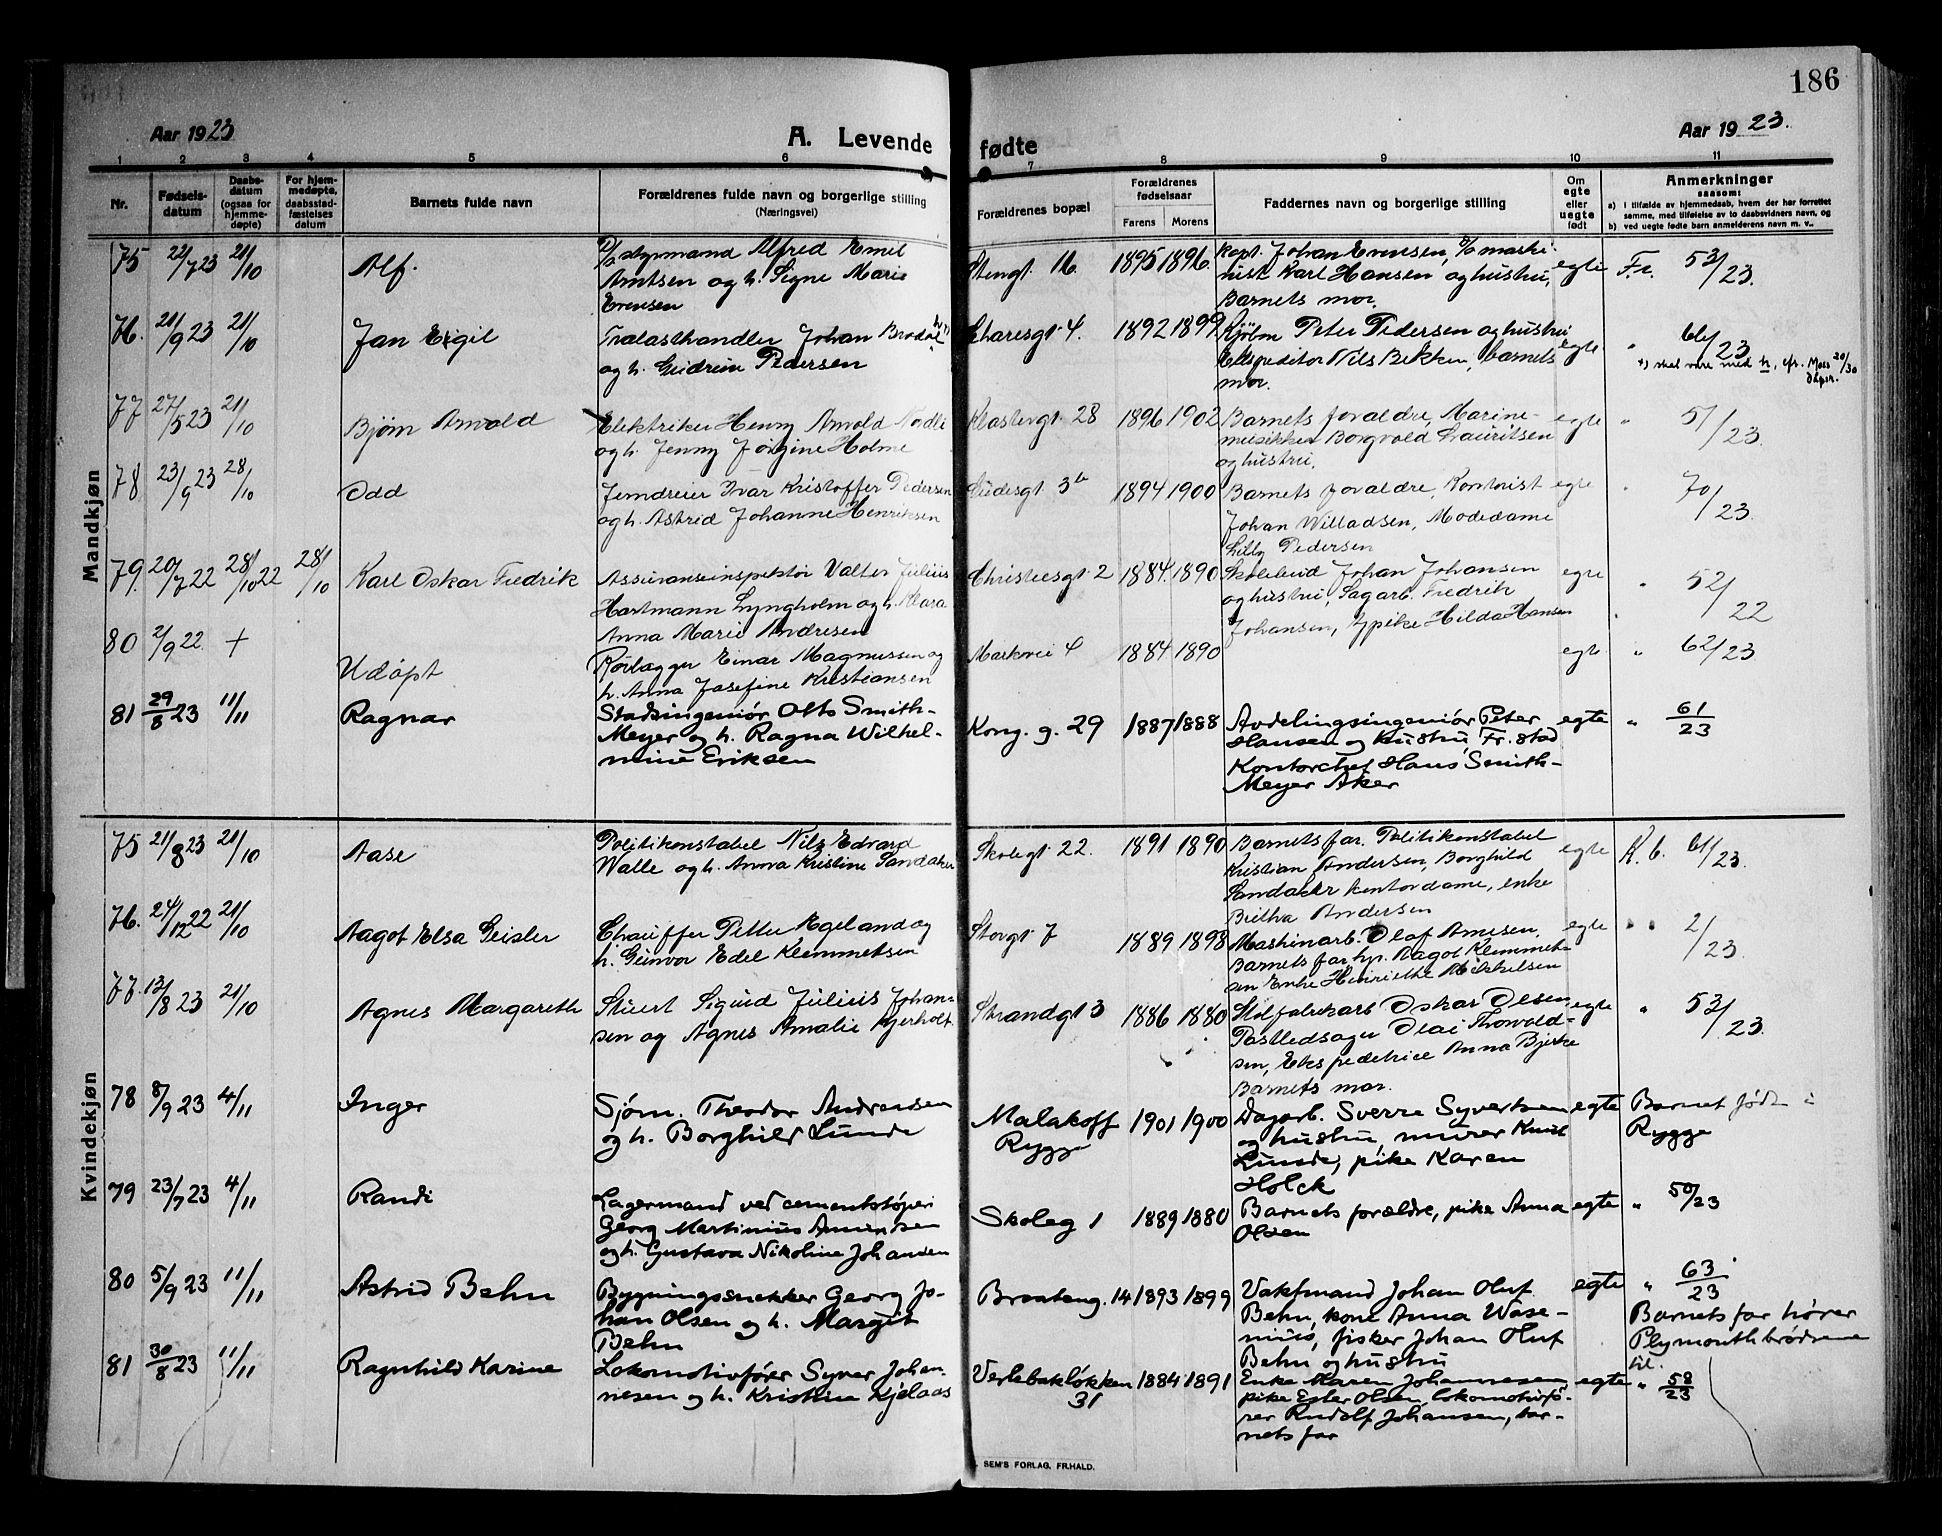 186
Aar 1923
A. Levende
fødte
Aar 1923.
1 2 3 4 5 6 7 8 9 10 11
Nr.
Fødsels-
datum
Daabs-
datum
(ogsaa for
hjemme-
døpte)
For hjem-
medøpte,
daabsstad-
fæstelses
datum
Barnets fulde navn
Forældrenes fulde navn og borgerlige stilling
(Næringsvei)
Forældrenes bopæl
Forældrenes
fødselsaar
Farens Morens
Faddernes navn og borgerlige stilling
Om
egte
eller
uegte
født
Anmerkninger
saasom:
a) I tilfælde av hjemmedaab, hvem der har forrettet
samme, med tilføielse av to daabsvidners navn, og
b) ved uegte fødte barn anmelderens navn m. v..
Mandkjøn
75 22/7 23 21/10 Alf.
styrmand Alfred Emil
Arntsen og h. Signe Marie
Evensen
Stengt. 16. 1895 1896
kapt. Johan Evensen, maski-
nist Karl Hansen og hustru,
Barnets mor.
egte Fr. 53/23.
76. 21/9 23 21/10 Jan Eigil
Trælasthandler Johan Brodal
og h. Gudrun Pedersen
Charesgt. 4. 1892 1899
Kjøbm Peter Pedersen og hustru
Ekspeditør Nils Bekken, barnets
mor.
egte " 61/23
*) skal være med h, cfr. Moss 20/30
77 27/5 23 21/10 Bjørn Arvold
Elektriker Henry Arvold Nordli
og h. Jenny Jørgine Holme
Klostergt. 28 1896 1902
Barnets forældre, Marine-
musikker Borgvald Lauritsen
og hustru,
egte " 51/23.
78 23/9 23 28/10 Odd
Jerndreier Ivar Kristoffer Pedersen
og h. Astrid Johanne Henriksen
3b 1894 1900
Barnets forældre, Kontorist
Johan Willadsen, Modedame
Lilly Pedersen
egte " 70/23.
79. 20/7 22 28/10 22 28/10 Karl Oskar Fredrik
Assuranseinspektør Valter Julius
Hartmann Lyngholm og h. Klara
Anna Marie Andresen
Christiesgt. 2 1884. 1890
Skolebud Johan Johansen
og hustru, Sagarb. Fredrik
Johansen, pike Hilda Hansen
egte " 52/22
80 2/9 22 + Udøpt
Rørlægger Einar Magnussen og
h. Anna Josefine Kristiansen
Markvei 4 1884 1890
egte " 62/23
81 29/8 23 11/11 Ragnar
Stadsingeniør Otto Smith-
Meyer og h. Ragna Wilhel-
mine Eriksen
Kong. g. 29 1887 1888
Avdelingsingeniør Peter
Hansen og hustru, Fr.stad
Kontorchef Hans Smith-
Meyer Aker
egte " 61/23
Kvindekjøn
75 21/8 23 21/10 Aase
Politikonstabel Nils Edvard
Walle og h. Anna Kristine Sandaker
Skolegt. 22. 1891 1890
Barnets far. Politikonstabel
Kristian Andersen, Borghild
Sandaker kontordame, enke
Andersen
egte K. b. 61/23.
76. 24/12 22 21/10 Aagot Elsa Geisler
Chauffer Petter Egeland og
h. Gunvor Edel Klemmetsen
Storgt. 7 1889 1898
Maskinarb. Olaf Arnesen,
Barnets far hp. Aagot Klemmet-
sen Enke Henriette Mikkelsen
egte " " 2/23.
77. 12/8 23 21/10 Agnes Margareth
Stuert Sigurd Julius Johan-
sen og Agnes Amalie Kjerholt
Strandgt. 3 1886 1880
Oskar Olsen
Olai Thorvald-
sen, Ekspeditrice Anna Bjerke
Barnets mor.
egte " 53/23.
78 8/9 23 4/11 Inger
Sjøm. Theodor Andreasen
og h. Borghild Lunde
Malakoff
Rygge
1901 1900
Dagarb. Sverre Syvertsen
og hustru, murer Knut
Lunde, pike Karen
Holck
egte Barnet født i
Rygge
79 23/7 23 4/11 Randi
Lagermand ved cementstøperi
Georg Martinius Amundsen
og h. Gustava Nikoline Johansen
Skoleg 1 1889 1880
Barnets forældre, pike Anna
Olsen
egte " 50/23
80 5/9 23 11/11 Astrid Behn
Bygningssnekker Georg Jo-
han Olsen og h. Margit
Behn
Braateng. 14 1893 1899
Vaktmand Johan Oluf
Behn, kone Anna Wase-
nius, fisker Johan Oluf
Behn og hustru
egte " 63/23
Barnets far hører
Plymouthbrødrene
til.
81 30/8 23 11/11 Ragnhild Karine
Lokomotivfører Syver Johan-
nesen og h. Kristine Kjølaas
Verlebakløkken
31
1884 1891
Enke Maren Johannesen
pike Ester Olsen, lokomotivfø-
rer Rudolf Johansen, bar-
nets far
egte " 58/23
SEM'S FORLAG, FR.HALD.